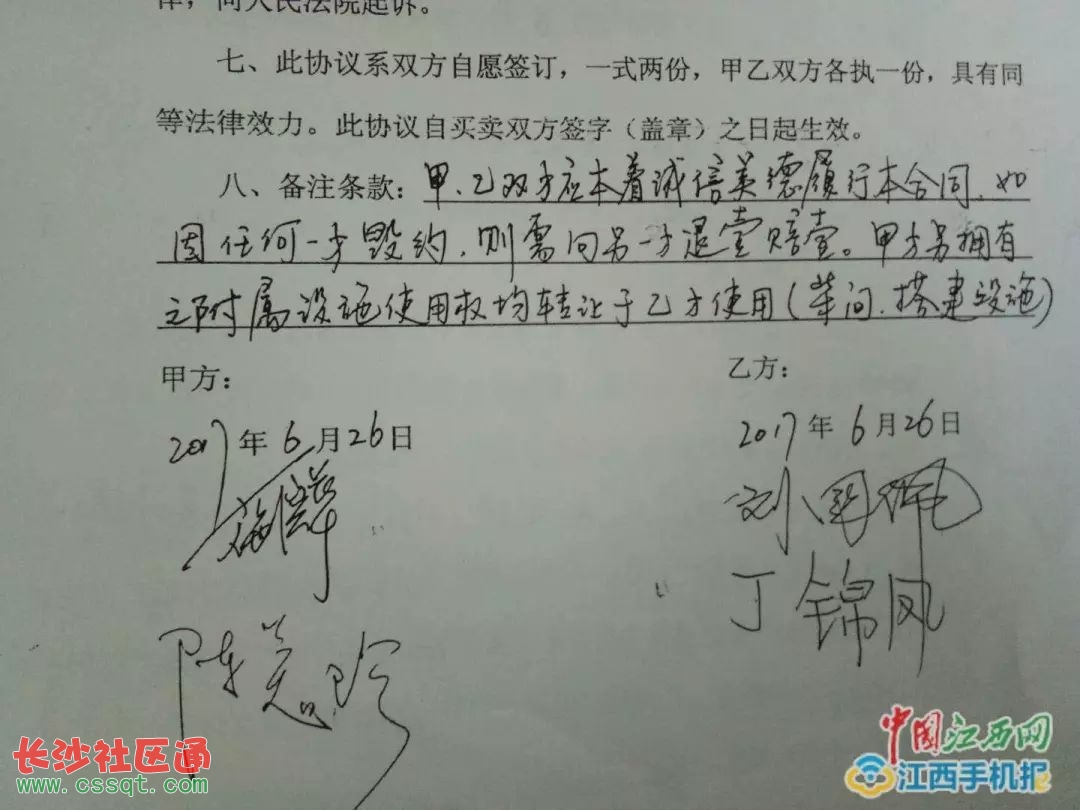 律，向人民法院起诉。
七、此协议系双方自愿签订，一式两份，甲乙双方各执一份，具有同
等法律效力。此协议自买卖双方签字（盖章）之日起生效。
八、备注条款：甲、乙双方应本着诚信美德履行本合同、如
因任何一方毁约，则需向另一方退壹赔壹。甲方另拥有
之附属设施使用权均转让于乙方使用(柴间、搭建设施)
甲方： 乙方：
2017年6月26日 2017年6月26日
刘国佩
丁锦凤
陈
长沙社区通
www.cssqt.com
中国江西网
江西手机报